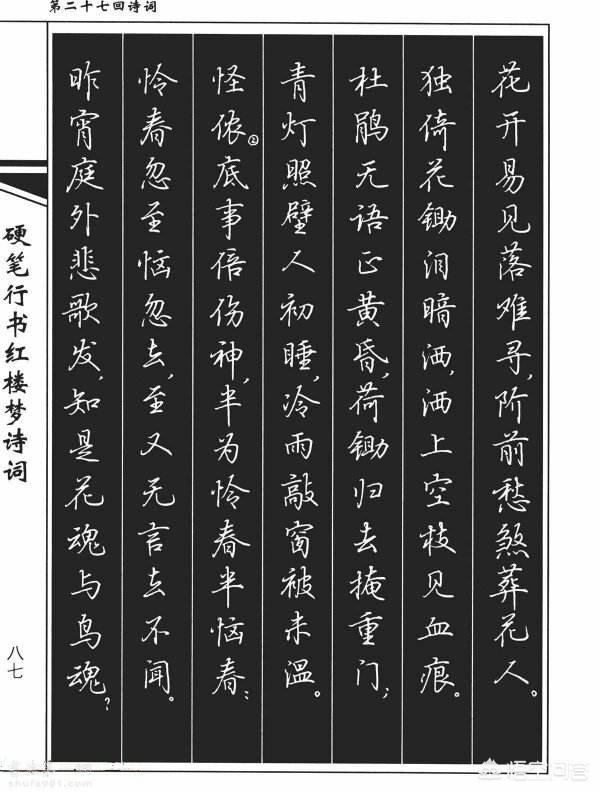 第二十七回诗词
花开易见落难寻,阶前愁煞葬花人。
独倚花锄泪暗洒,洒上空枝见血痕。
杜鹃无语正黄昏,荷锄归去掩重门;
青灯照壁人初睡,冷雨敲窗被未温。
怪侬②底事倍伤神,半为怜春半恼春:
怜春忽至恼忽去,至又无言去不闻。
昨宵庭外悲歌发,知是花魂与鸟魂?
硬笔行书红楼梦诗词
八七
shufa001.com
悟空问答